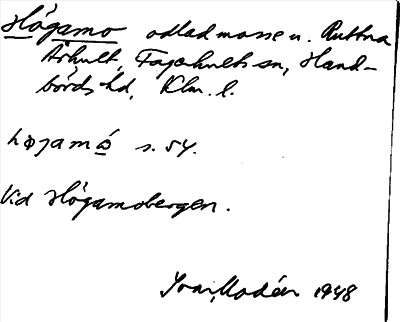 Högamo odlad mosse u. Ruttna
Århult, Fagerhults sn, Hand-
börds hd, Klm. l.
høgamó s. 54.
Vid Högamobergen.
Ivar Modéer 1948